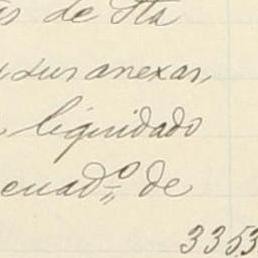 de Sta
sus anexas,
liquidado
cuad.º de
3353